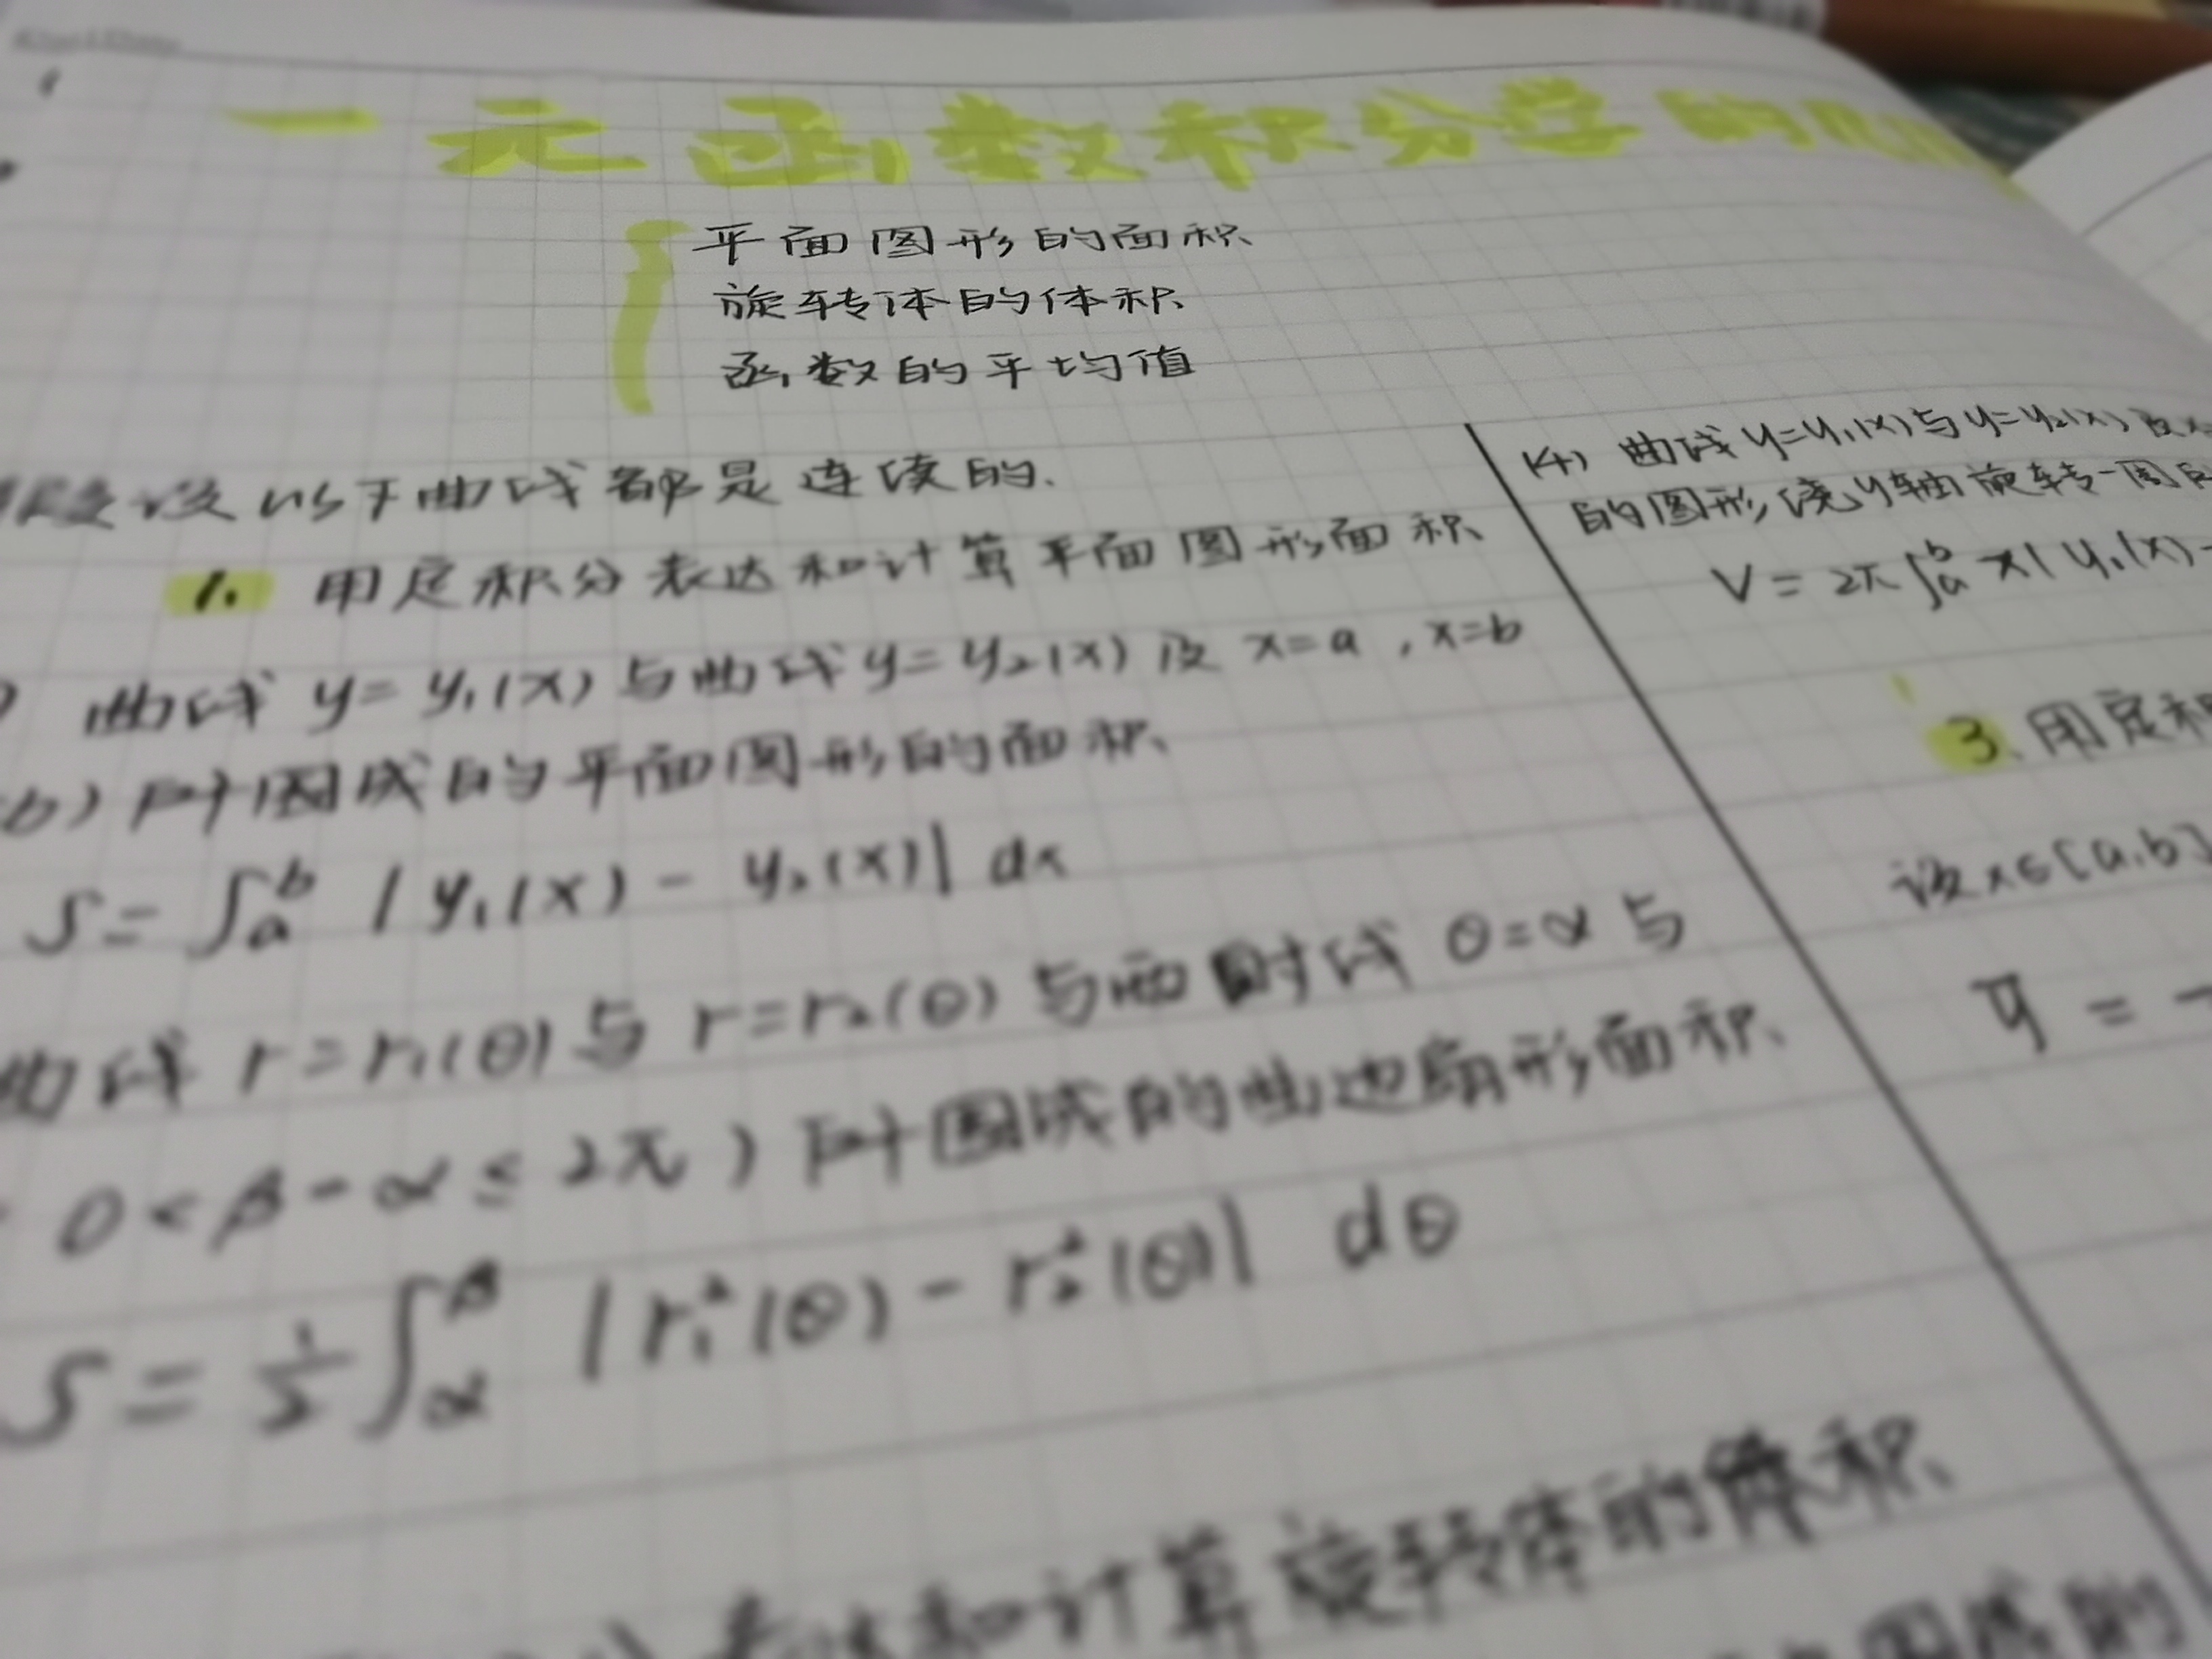 一元函数积分学的
平面图形的面积
旋转体的体积
函数的平均值
假设以下曲线都是连续的.
1. 用定积分表达和计算平面图形面积
曲线 y=y₁(x)与曲线y=y₂(x)及 x=a,x=b
b)所围成的平面图形的面积
S=∫ₐᵇ |y₁(x)-y₂(x)| dx
曲线 r=r₁(θ)与 r=r₂(θ)与两射线 θ=α 与
0<β-α≤2π)所围成的曲边扇形面积
S=½∫_α^β |r₁²(θ)-r₂²(θ)| dθ
表达和计算旋转体的体积
围成的
(4) 曲线y=y₁(x)与y=y₂(x)及x
的图形绕y轴旋转一周
V=2π∫ₐᵇ x|y₁(x)-
3. 用定积
设x∈[a,b]
ȳ =